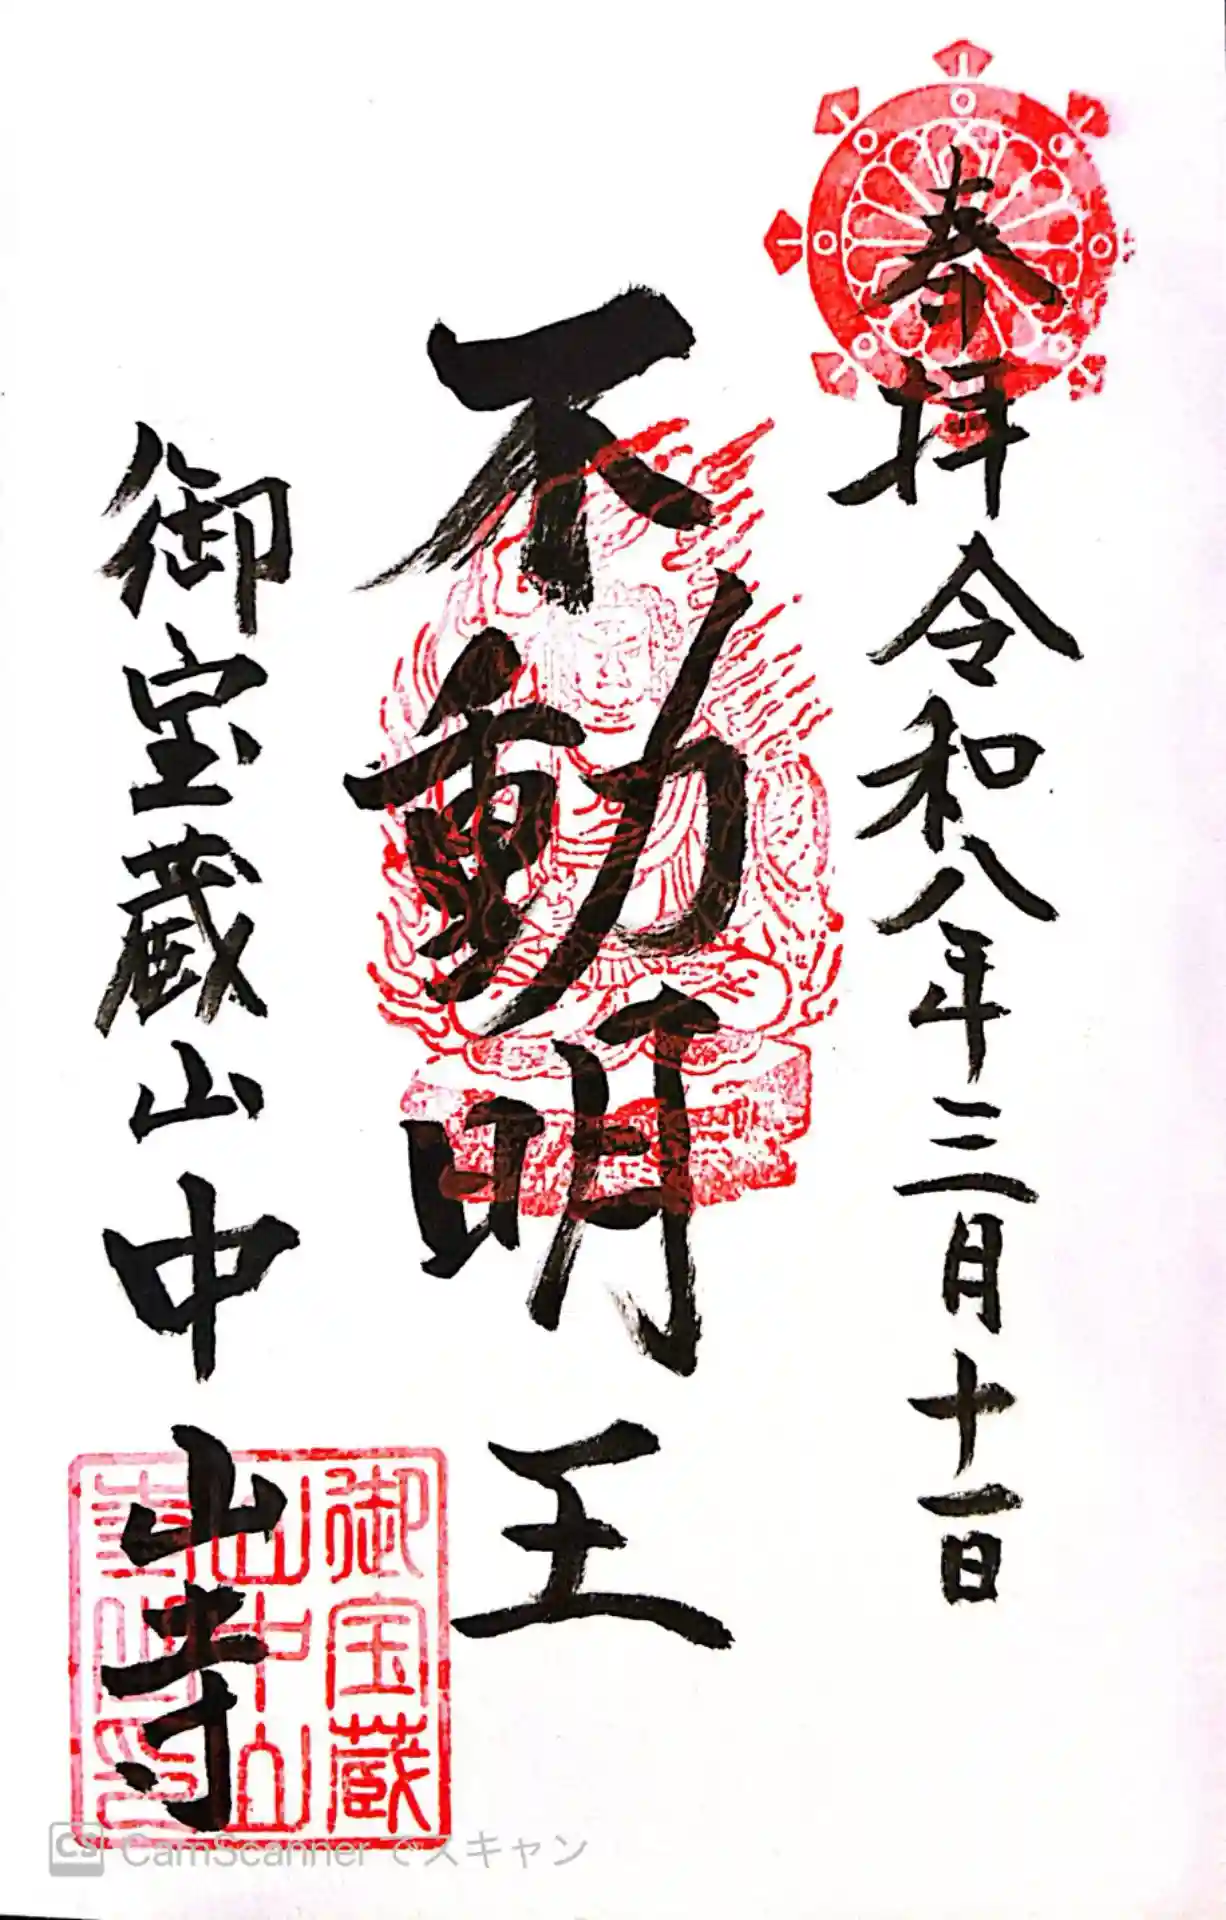 奉拝 令和八年三月十一日
不動明王
御宝蔵山中山寺
御宝蔵
山中山
寺
CS CamScanner でスキャン